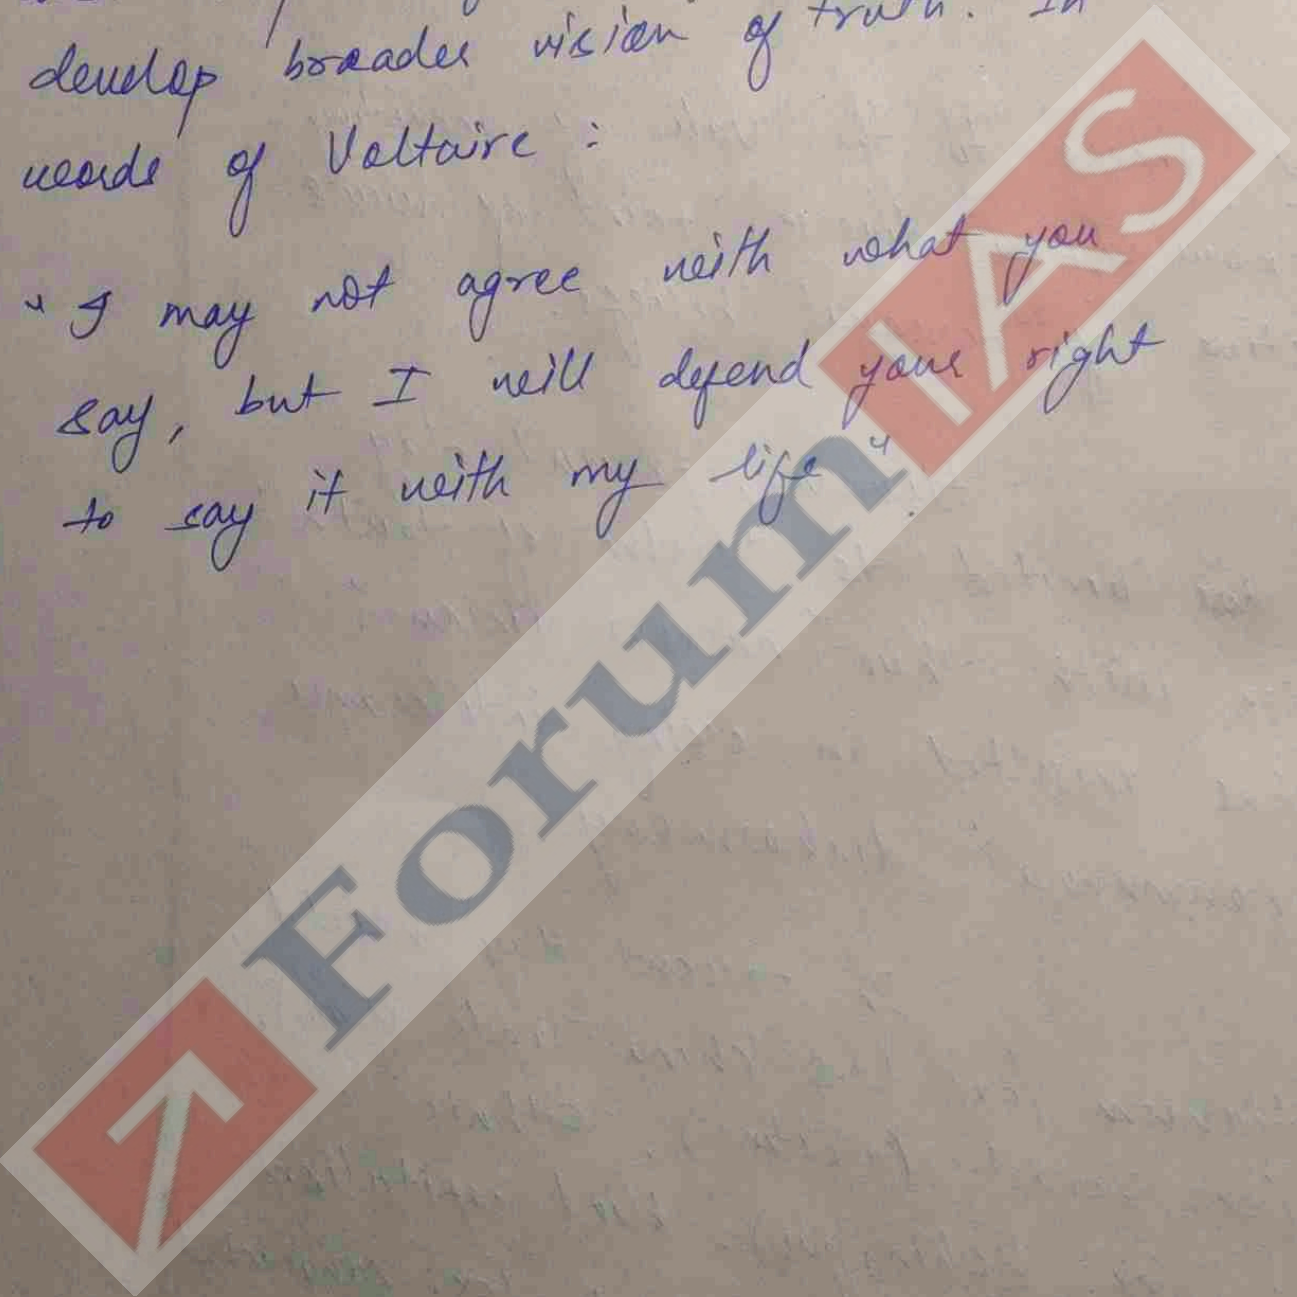 develop broader vision of truth. In
words of Voltaire :
" I may not agree with what you
say, but I will defend your right
to say it with my life ".
7 ForumIAS